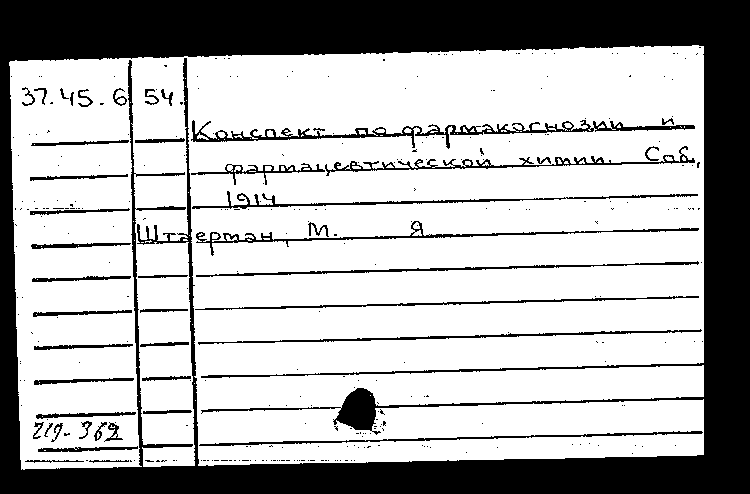 37.45.6 54.
Конспект по фармакогнозии и
фармацевтической химии. Спб,
1914
Штаерман, М. Я
219-362